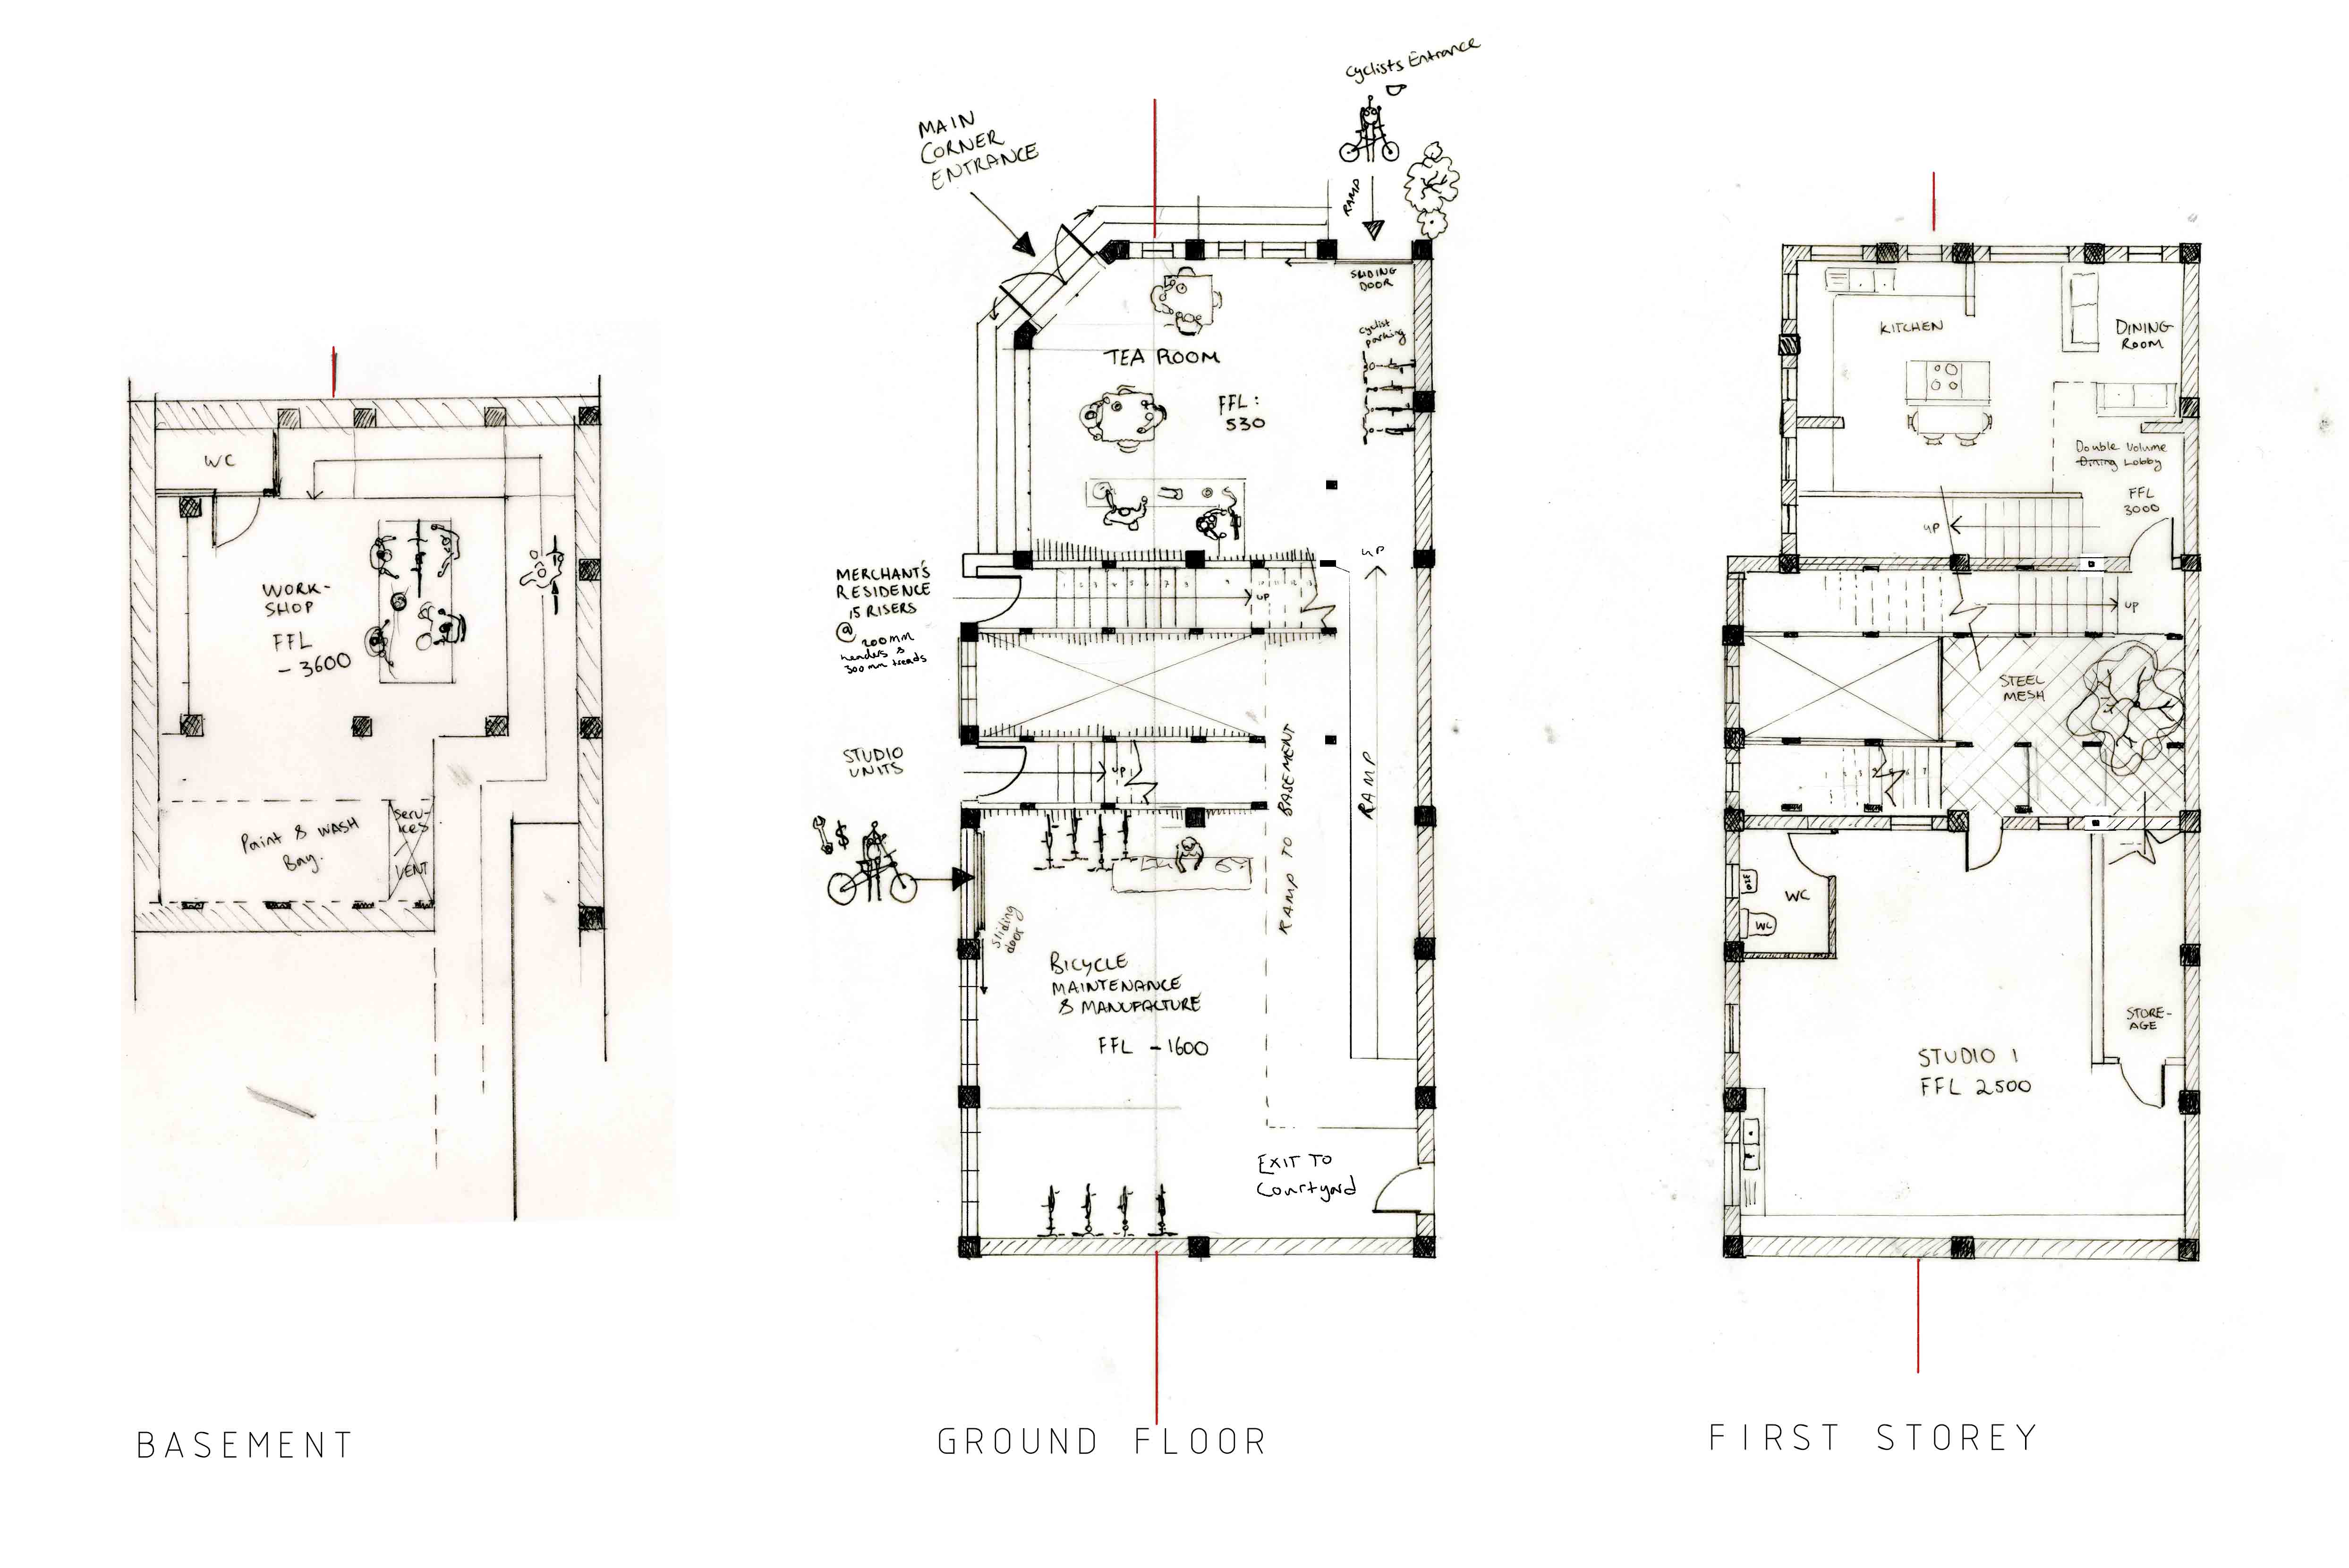 WC
WORK-
SHOP
FFL
- 3600
Paint & WASH
Bay.
Serv-
ices
VENT
BASEMENT
Cyclists Entrance
MAIN
CORNER
ENTRANCE
RAMP
SLIDING
DOOR
cyclist
parking
TEA ROOM
FFL :
530
UP
MERCHANT'S
RESIDENCE
15 RISERS
@ 200mm
headers &
300mm treads
UP
STUDIO
UNITS
UP
RAMP TO BASEMENT
RAMP
$
sliding
door
BICYCLE
MAINTENANCE
& MANUFACTURE
FFL - 1600
EXIT TO
Courtyard
GROUND FLOOR
KITCHEN
DINING
ROOM
Double Volume
Dining Lobby
FFL
3000
UP
UP
STEEL
MESH
WC
WC
STORE-
AGE
STUDIO 1
FFL 2500
FIRST STOREY